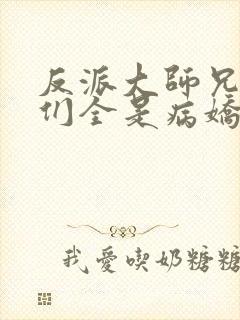 反派大師兄
们全是病嬌
我愛喫奶糖糖